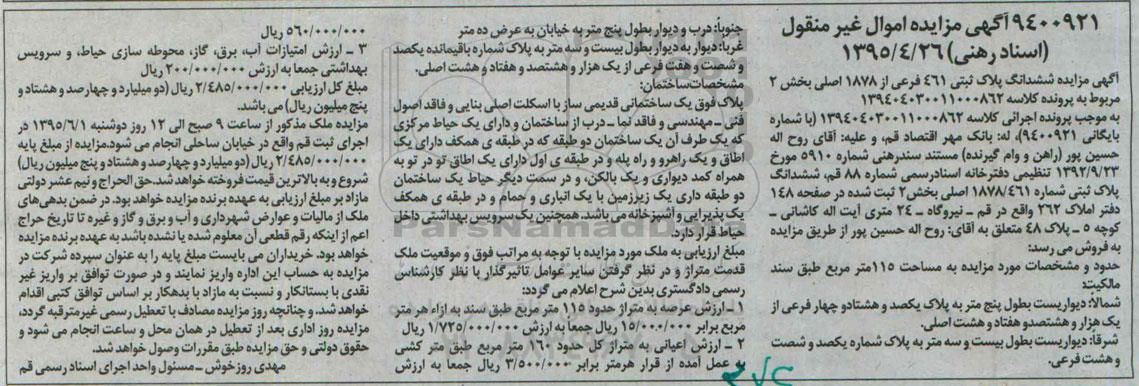 ۹۴۰۰۹۲۱ آگهی مزایده اموال غیر منقول
(اسناد رهنی) ۱۳۹۵/۴/۲۶
آگهی مزایده ششدانگ پلاک ثبتی ۴۶۱ فرعی از ۱۸۷۸ اصلی بخش ۲
مربوط به پرونده کلاسه ۱۳۹۴۰۴۰۳۰۰۱۱۰۰۰۸۶۲
به موجب پرونده اجرائی کلاسه ۱۳۹۴۰۴۰۳۰۰۱۱۰۰۰۸۶۲ (با شماره
بایگانی ۹۴۰۰۹۲۱)، له: بانک مهر اقتصاد قم، و علیه: آقای روح اله
حسین پور (راهن و وام گیرنده) مستند سندرهنی شماره ۵۹۱۰ مورخ
۱۳۹۲/۹/۲۳ تنظیمی دفترخانه اسنادرسمی شماره ۸۸ قم، ششدانگ
پلاک ثبتی شماره ۱۸۷۸/۴۶۱ اصلی بخش۲ ثبت شده در صفحه ۱۴۸
دفتر املاک ۲۶۲ واقع در قم ـ نیروگاه ـ ۲۴ متری آیت اله کاشانی ـ
کوچه ۵ ـ پلاک ۴۸ متعلق به آقای: روح اله حسین پور از طریق مزایده
به فروش می رسد:
حدود و مشخصات مورد مزایده به مساحت ۱۱۵متر مربع طبق سند
مالکیت:
شمالا: دیواریست بطول پنج متر به پلاک یکصد و هشتادو چهار فرعی از
یک هزار و هشتصدو هفتاد و هشت اصلی.
شرقا: دیواریست بطول بیست و سه متر به پلاک شماره یکصد و شصت
و هشت فرعی.
جنوبا: درب و دیوار بطول پنج متر به خیابان به عرض ده متر
غربا: دیوار به دیوار بطول بیست و سه متر به پلاک شماره باقیمانده یکصد
و شصت و هفت فرعی از یک هزار و هشتصد و هفتاد و هشت اصلی.
مشخصات ساختمان:
پلاک فوق یک ساختمانی قدیمی ساز با اسکلت اصلی بنایی و فاقد اصول
فنی ـ مهندسی و فاقد نما ـ درب از ساختمان و دارای یک حیاط مرکزی
که یک طرف آن یک ساختمان دو طبقه که در طبقه ی همکف دارای یک
اطاق و یک راهرو و راه پله و در طبقه ی اول دارای یک اطاق تو در تو به
همراه کمد دیواری و یک بالکن، و در سمت دیگر حیاط یک ساختمان
دو طبقه داری یک زیرزمین با یک انباری و حمام و در طبقه ی همکف
یک پذیرایی و آشپزخانه می باشد. همچنین یک سرویس بهداشتی داخل
حیاط قرار دارد.
مبلغ ارزیابی به ملک مورد مزایده با توجه به مراتب فوق و موقعیت ملک
قدمت متراژ و در نظر گرفتن سایر عوامل تاثیرگذار با نظر کارشناس
رسمی دادگستری بدین شرح اعلام می گردد:
۱ ـ ارزش عرصه به متراژ حدود ۱۱۵ متر مربع طبق سند به ازاء هر متر
مربع برابر ۱۵/۰۰۰/۰۰۰ ریال جمعا به ارزش ۱/۷۲۵/۰۰۰/۰۰۰ ریال
۲ ـ ارزش اعیانی به متراژ کل حدود ۱۶۰ متر مربع طبق متر کشی
به عمل آمده از قرار هرمتر برابر ۳/۵۰۰/۰۰۰ ریال جمعا به ارزش
۵۶۰/۰۰۰/۰۰۰ ریال
۳ ـ ارزش امتیازات آب، برق، گاز، محوطه سازی حیاط، و سرویس
بهداشتی جمعا به ارزش ۲۰۰/۰۰۰/۰۰۰ ریال
مبلغ کل ارزیابی ۲/۴۸۵/۰۰۰/۰۰۰ ریال (دو میلیارد و چهارصد و هشتاد و
پنج میلیون ریال) می باشد.
مزایده ملک مذکور از ساعت ۹ صبح الی ۱۲ روز دوشنبه ۱۳۹۵/۶/۱ در
اجرای ثبت قم واقع در خیابان ساحلی انجام می شود.مزایده از مبلغ پایه
۲/۴۸۵/۰۰۰/۰۰۰ ریال (دو میلیارد و چهارصد و هشتاد و پنج میلیون ریال)
شروع و به بالاترین قیمت فروخته خواهد شد. حق الحراج و نیم عشر دولتی
مازاد بر مبلغ ارزیابی به عهده برنده مزایده خواهد بود. در ضمن بدهی های
ملک از مالیات و عوارض شهرداری و آب و برق و گاز و غیره تا تاریخ حراج
اعم از اینکه رقم قطعی آن معلوم شده یا نشده باشد به عهده برنده مزایده
خواهد بود. خریداران می بایست مبلغ پایه را به عنوان سپرده شرکت در
مزایده به حساب این اداره واریز نمایند و در صورت توافق بر واریز غیر
نقدی با بستانکار و نسبت به مازاد با بدهکار بر اساس توافق کتبی اقدام
خواهد شد. و چنانچه روز مزایده مصادف با تعطیل رسمی غیرمترقبه گردد،
مزایده روز اداری بعد از تعطیل در همان محل و ساعت انجام می شود و
حقوق دولتی و حق مزایده طبق مقررات وصول خواهد شد.
مهدی روزخوش ـ مسئول واحد اجرای اسناد رسمی قم
ParsNamadData